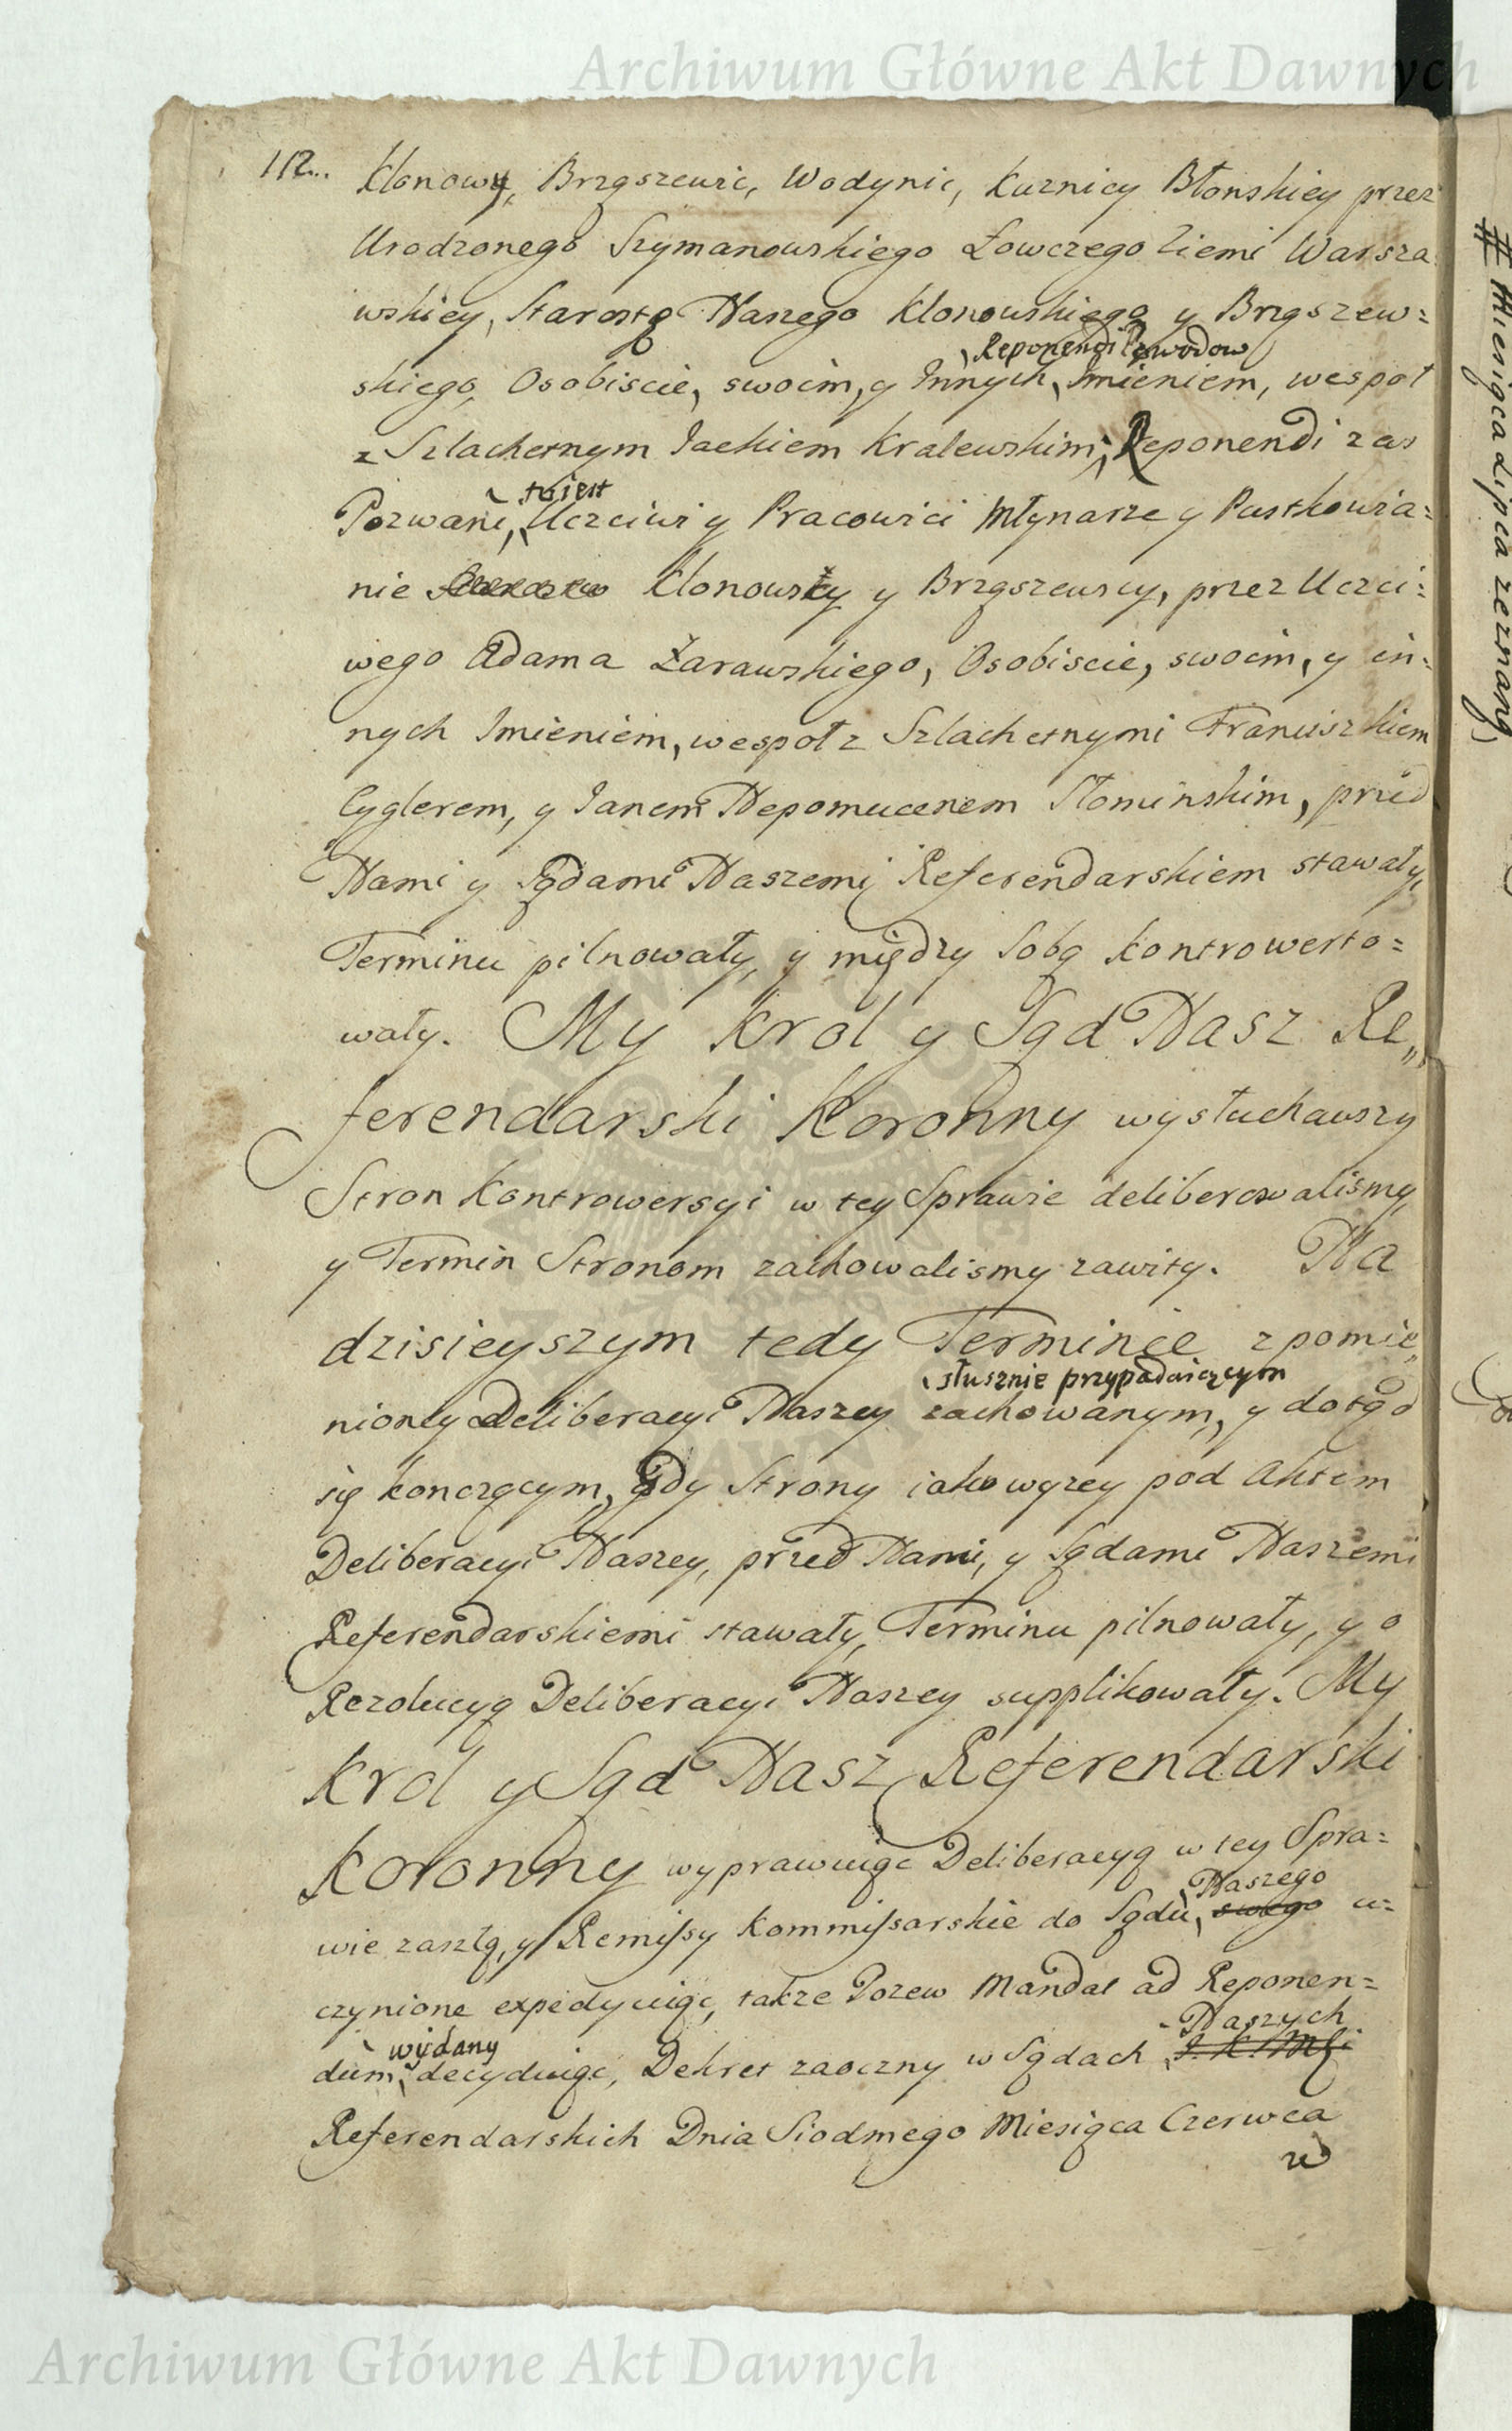 Archiwum Główne Akt Dawnych
112..
Klonowy, Brząszewic, Wodynic, Kuznicy Błonskiey przez
Urodzonego Szymanowskiego Łowczego Ziemi Warsza
wskiey, Starostę Naszego Klonowskiego y Brząszew=
Reponendi Powodow
skiego, Osobiscie, swoim, y Innych, Imieniem, wespoł
z Szlachetnym Jackiem Kralewskim, Reponendi zas
to iest
Pozwani, Uczciwi y Pracowici Młynarze y Pustkowia=
nie Klonowscy y Brząszewscy, przez Uczci=
wego Adama Żarawskiego, Osobiscie, swoim, y in=
nych Imieniem, wespoł z Szlachetnymi Franciszkiem
Cyglerem, y Janem Nepomucenem Słominskim, przed
Nami y Sądami Naszemi Referendarskiem stawały,
Terminu pilnowały, y między Sobą kontrowerto=
wały. My Krol y Sąd Nasz Re„
ferendarski Koronny wysłuchawszy
Stron Kontrowersyi w tey Sprawie deliberowalismy,
y Termin Stronom zachowalismy zawity. Na
dzisieyszym tedy Terminie z pomie„
słusznie przypadaiącym
nioney Deliberacyi Naszey zachowanym, y dotąd
się konczącym, gdy Strony iako wyzey pod Aktem
Deliberacyi Naszey, przed Nami, y Sądami Naszemi
Referendarskiemi stawały, Terminu pilnowały, y o
Rezolucyą Deliberacyi Naszey supplikowały. My
Krol y Sąd Nasz Referendarski
Koronny wyprawuiąc Deliberacyą w tey Spra=
Naszego
wie zaszłą, y Remissy Kommissarskie do Sądu swego u=
czynione expedyuiąc, także Pozew Mandat ad Reponen=
wydany Naszych
dum decyduiąc, Dekret zaoczny w Sądach J. K. Mci
Referendarskich Dnia Siodmego Miesiąca Czerwca
w
# Miesiąca Lipca zeznany
Archiwum Główne Akt Dawnych